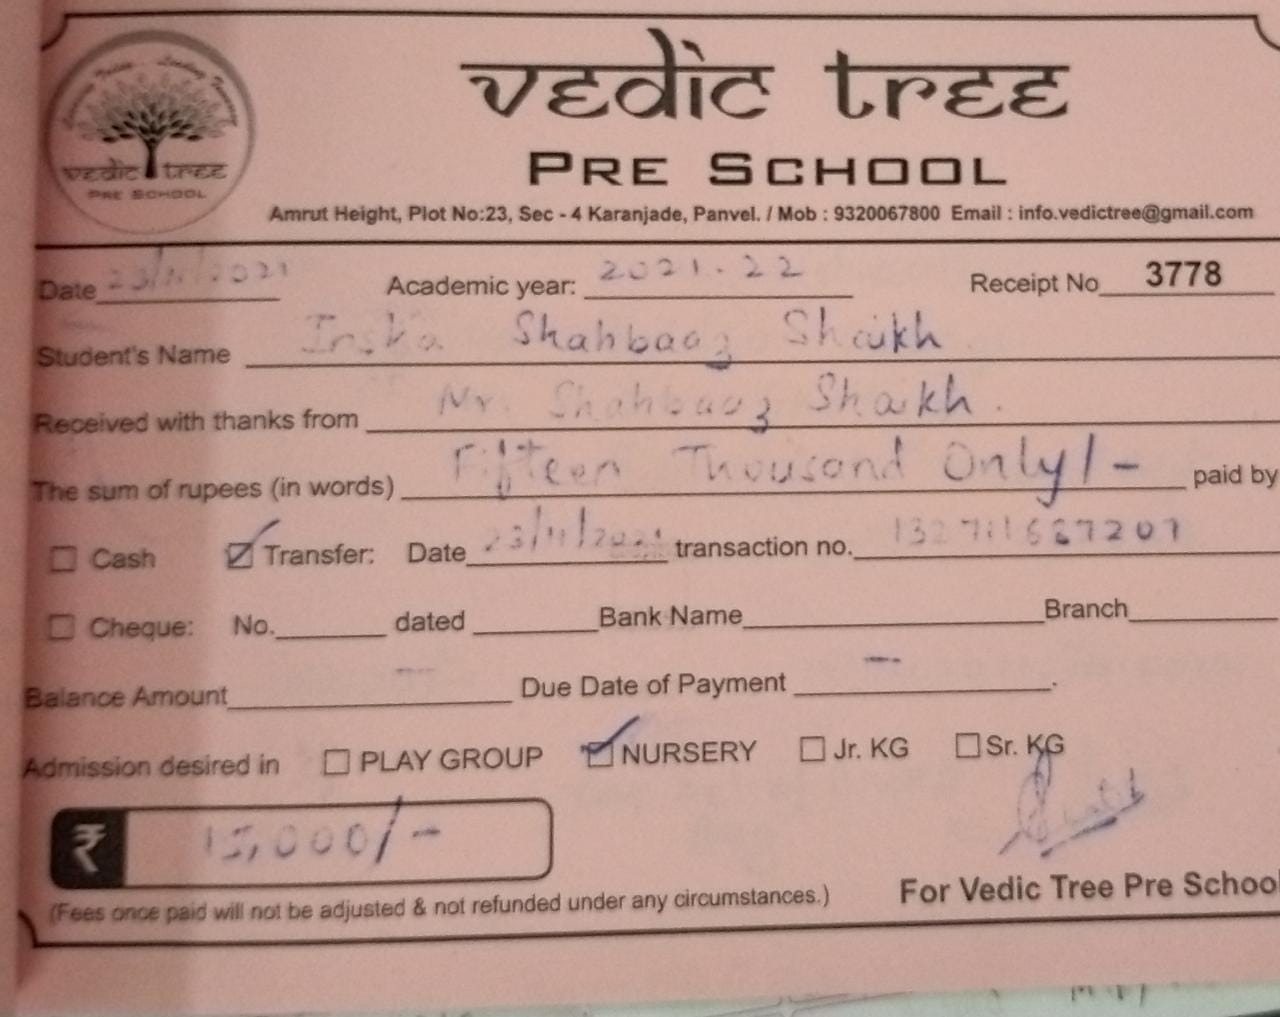 vedic tree
PRE SCHOOL
vedic tree
PRE SCHOOL
Amrut Height, Plot No:23, Sec - 4 Karanjade, Panvel. / Mob : 9320067800 Email : info.vedictree@gmail.com
Date 23/11/2021 Academic year: 2021-22 Receipt No 3778
Student's Name Shahbaaz Shaikh
Received with thanks from Mr. Shahbaaz Shaikh.
The sum of rupees (in words) Fifteen Thousand Only/- paid by
Cash Transfer: Date 23/11/2021 transaction no.
Cheque: No. dated Bank Name Branch
Balance Amount — Due Date of Payment —.
Admission desired in PLAY GROUP NURSERY Jr. KG Sr. KG
₹ 15,000/-
(Fees once paid will not be adjusted & not refunded under any circumstances.) For Vedic Tree Pre School